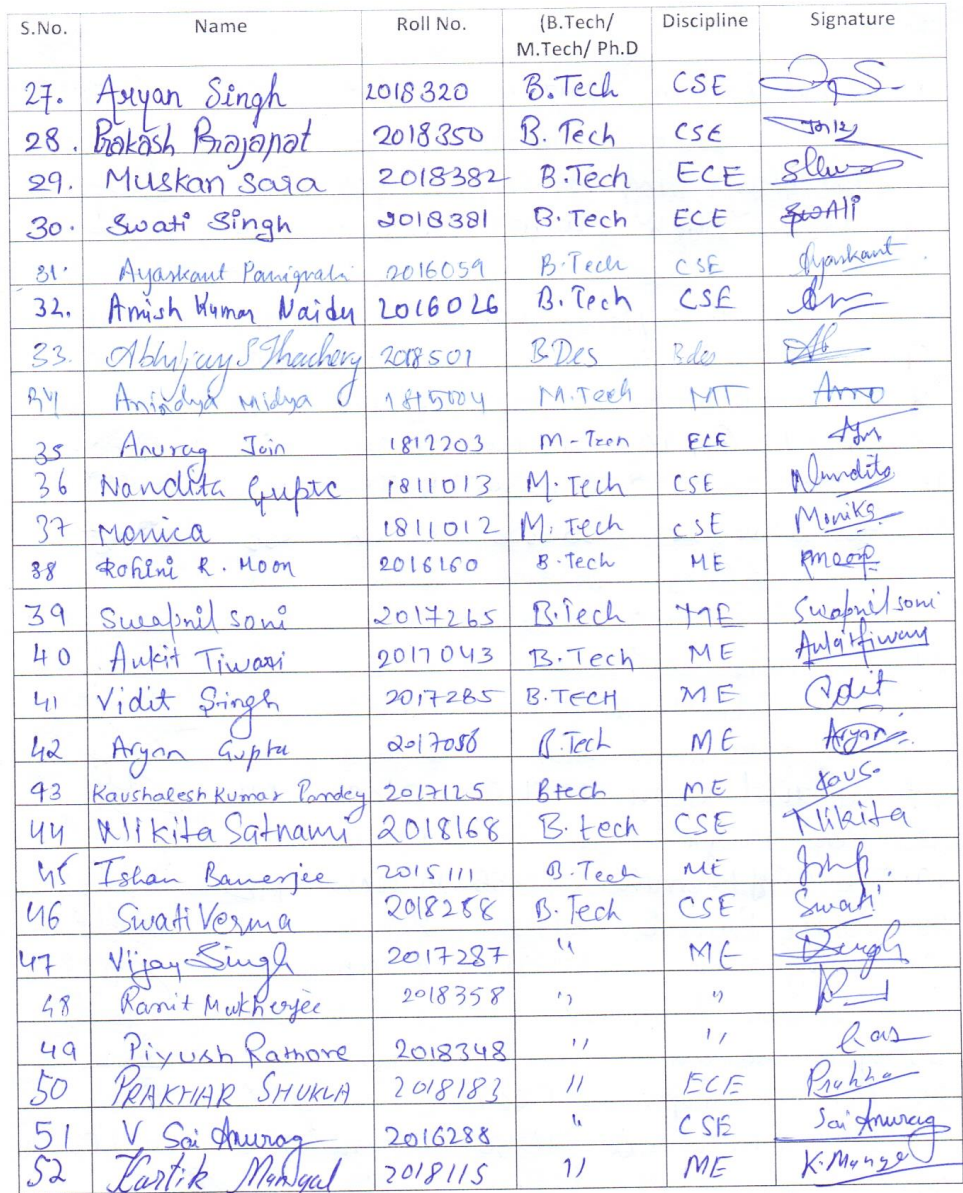 S.No. Name Roll No. (B.Tech/ M.Tech/ Ph.D Discipline Signature
27. Aryan Singh 2018320 B.Tech CSE
28. Prakash Prajapat 2018350 B. Tech CSE
29. Muskan Sara 2018382 B.Tech ECE
30. Swati Singh 2018381 B.Tech ECE Swati
31. Ayaskant Panigrahi 2016059 B.Tech CSE Ayaskant
32. Amish Kumar Naidu 2016026 B.Tech CSE
33. 2018501 B.Des Bdes
34 Anindya Midya M.Tech MT
35 Anurag Jain 1812203 ECE
36 Nandita Gupta 1811013 M.Tech CSE Nandita
37 Monica 1811012 M. Tech CSE Monika
38 Rohini R. Moon 2016160 B.Tech ME
39 Swapnil Soni 2017265 B.Tech ME Swapnil soni
40 Ankit Tiwari 2017043 B.Tech ME
41 Vidit Singh 2017285 B.TECH ME Vidit
42 Aryan Gupta 2017056 B.Tech ME Aryan
43 Kaushalesh Kumar Pandey 2017125 Btech ME Kaus
44 Nikita Satnami 2018168 B.tech CSE Nikita
45 Ishan Banerjee 2015111 B.Tech ME
46 Swati Verma 2018258 B.Tech CSE Swati
47 Vijay Singh 2017287 " ME
48 Ramit Mukherjee 2018358 " "
49 Piyush Rathore 2018348 " "
50 PRAKHAR SHUKLA 2018183 " ECE
51 V. Sai Anurag 2016288 " CSE Sai Anurag
52 Kartik Mangal 2018115 " ME K.Mangal